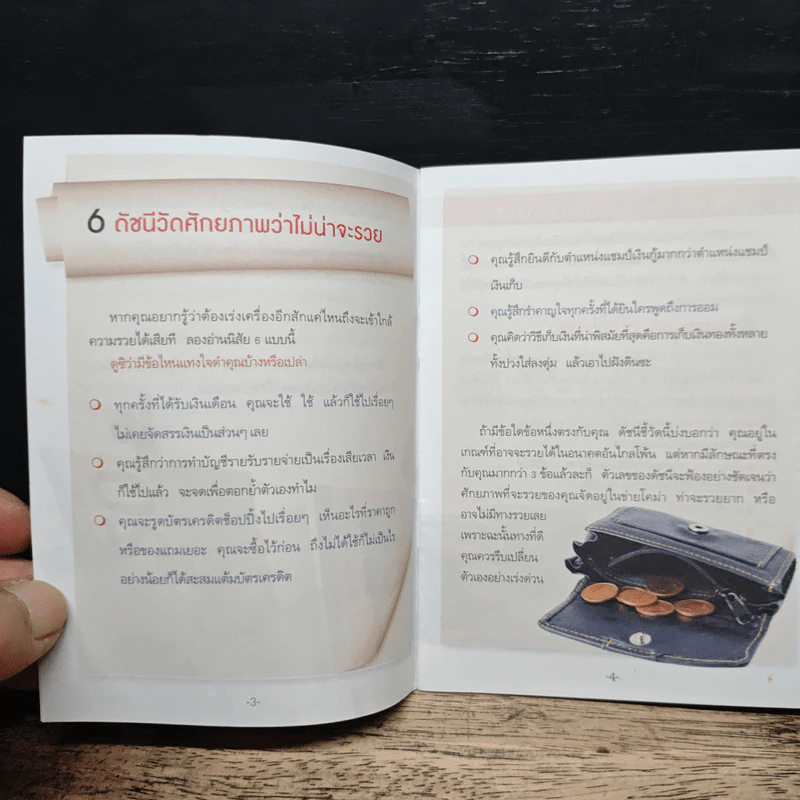 6 ดัชนีวัดศักยภาพว่าไม่น่าจะรวย
หากคุณอยากรู้ว่าต้องเร่งเครื่องอีกสักแค่ไหนถึงจะเข้าใกล้
ความรวยได้เสียที ลองอ่านนิสัย 6 แบบนี้
ดูซิว่ามีข้อไหนแทงใจดำคุณบ้างหรือเปล่า
ทุกครั้งที่ได้รับเงินเดือน คุณจะใช้ ใช้ แล้วก็ใช้ไปเรื่อยๆ
ไม่เคยจัดสรรเงินเป็นส่วนๆ เลย
คุณรู้สึกว่าการทำบัญชีรายรับรายจ่ายเป็นเรื่องเสียเวลา เงิน
ก็ใช้ไปแล้ว จะจดเพื่อตอกย้ำตัวเองทำไม
คุณจะรูดบัตรเครดิตช็อปปิ้งไปเรื่อยๆ เห็นอะไรที่ราคาถูก
หรือของแถมเยอะ คุณจะซื้อไว้ก่อน ถึงไม่ได้ใช้ก็ไม่เป็นไร
อย่างน้อยก็ได้สะสมแต้มบัตรเครดิต
-3-
คุณรู้สึกยินดีกับตำแหน่งแชมป์เงินกู้มากกว่าตำแหน่งแชมป์
เงินเก็บ
คุณรู้สึกรำคาญใจทุกครั้งที่ได้ยินใครพูดถึงการออม
คุณคิดว่าวิธีเก็บเงินที่น่าพิสมัยที่สุดคือการเก็บเงินทองทั้งหลาย
ทั้งปวงใส่ลงตุ่ม แล้วเอาไปฝังดินซะ
ถ้ามีข้อใดข้อหนึ่งตรงกับคุณ ดัชนีชี้วัดนี้บ่งบอกว่า คุณอยู่ใน
เกณฑ์ที่อาจจะรวยได้ในอนาคตอันไกลโพ้น แต่หากมีลักษณะที่ตรง
กับคุณมากกว่า 3 ข้อแล้วละก็ ตัวเลขของดัชนีจะฟ้องอย่างชัดเจนว่า
ศักยภาพที่จะรวยของคุณจัดอยู่ในข่ายโคม่า ท่าจะรวยยาก หรือ
อาจไม่มีทางรวยเลย
เพราะฉะนั้นทางที่ดี
คุณควรรีบเปลี่ยน
ตัวเองอย่างเร่งด่วน
-4-